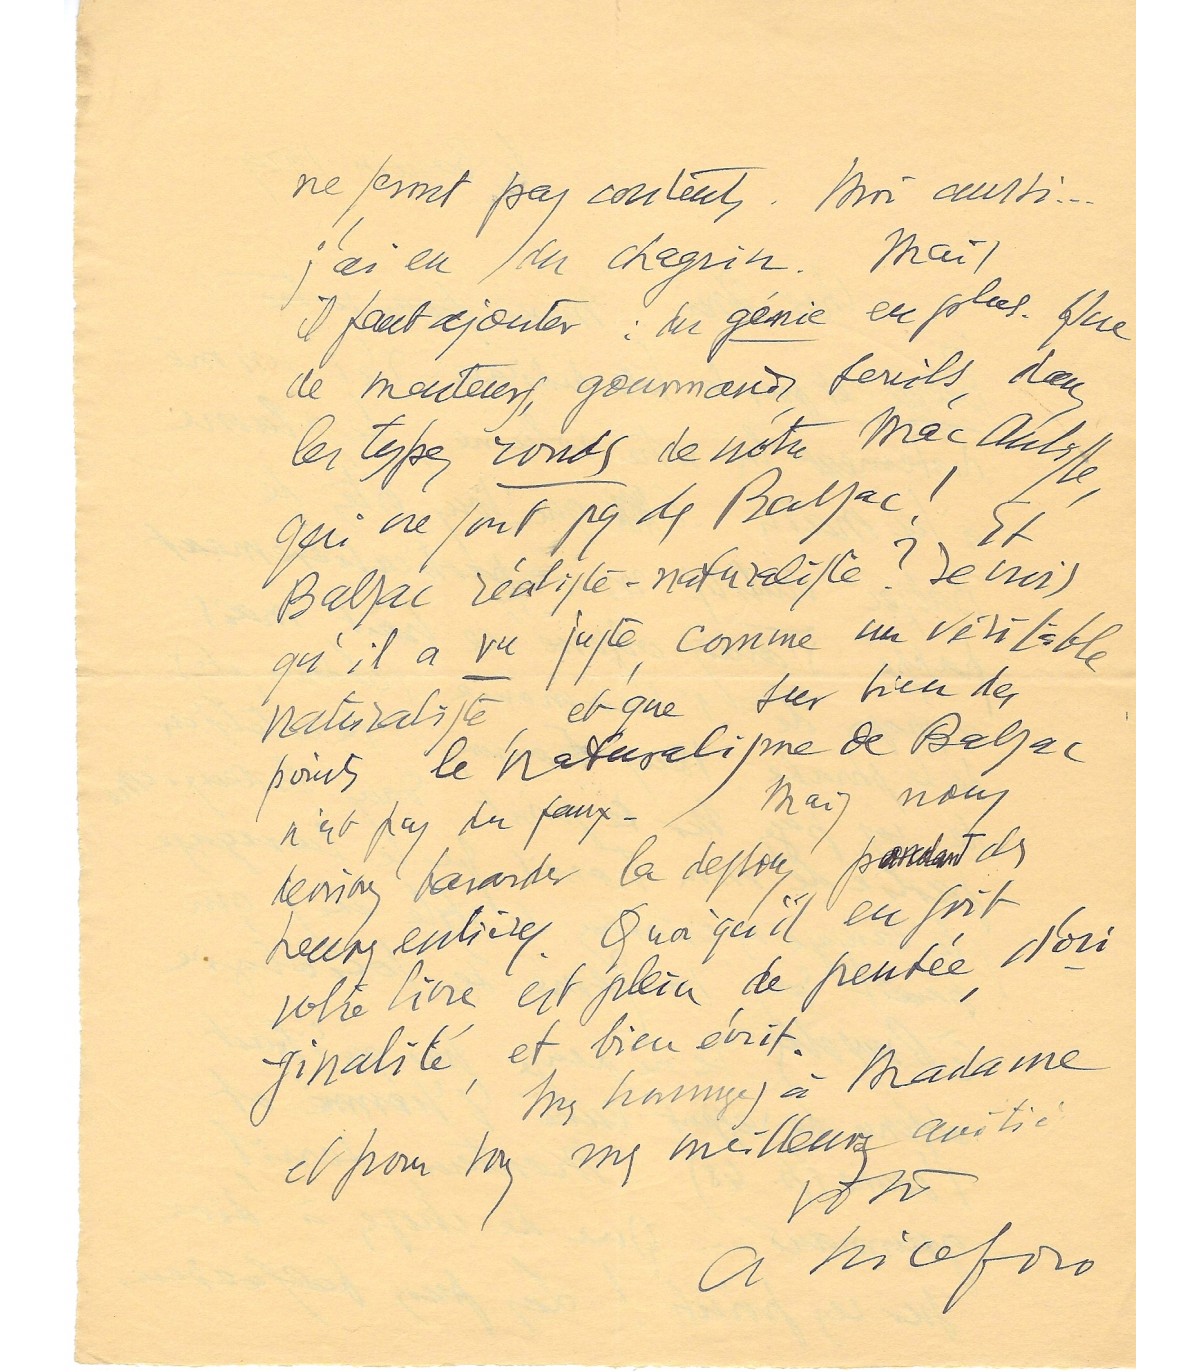 ne seront pas contents. Moi aussi...
j'ai eu du chagrin. Mais
il faut ajouter : du génie en plus. Que
de menteurs, gourmands, servils, dans
les types ronds de notre Mac Auliffe,
qui ne sont pas des Balzac! Et
Balzac réaliste-naturaliste? Je crois
qu'il a vu juste, comme un véritable
naturaliste, et que sur bien des
points le naturalisme de Balzac
n'est pas du faux. Mais nous
devrions bavarder là dessous pendant des
heures entières. Quoiqu'il en soit
votre livre est plein de pensée, d'ori
ginalité, et bien écrit.
Mes hommages à Madame
et pour vous mes meilleures amitiés
Votre
A Niceforo